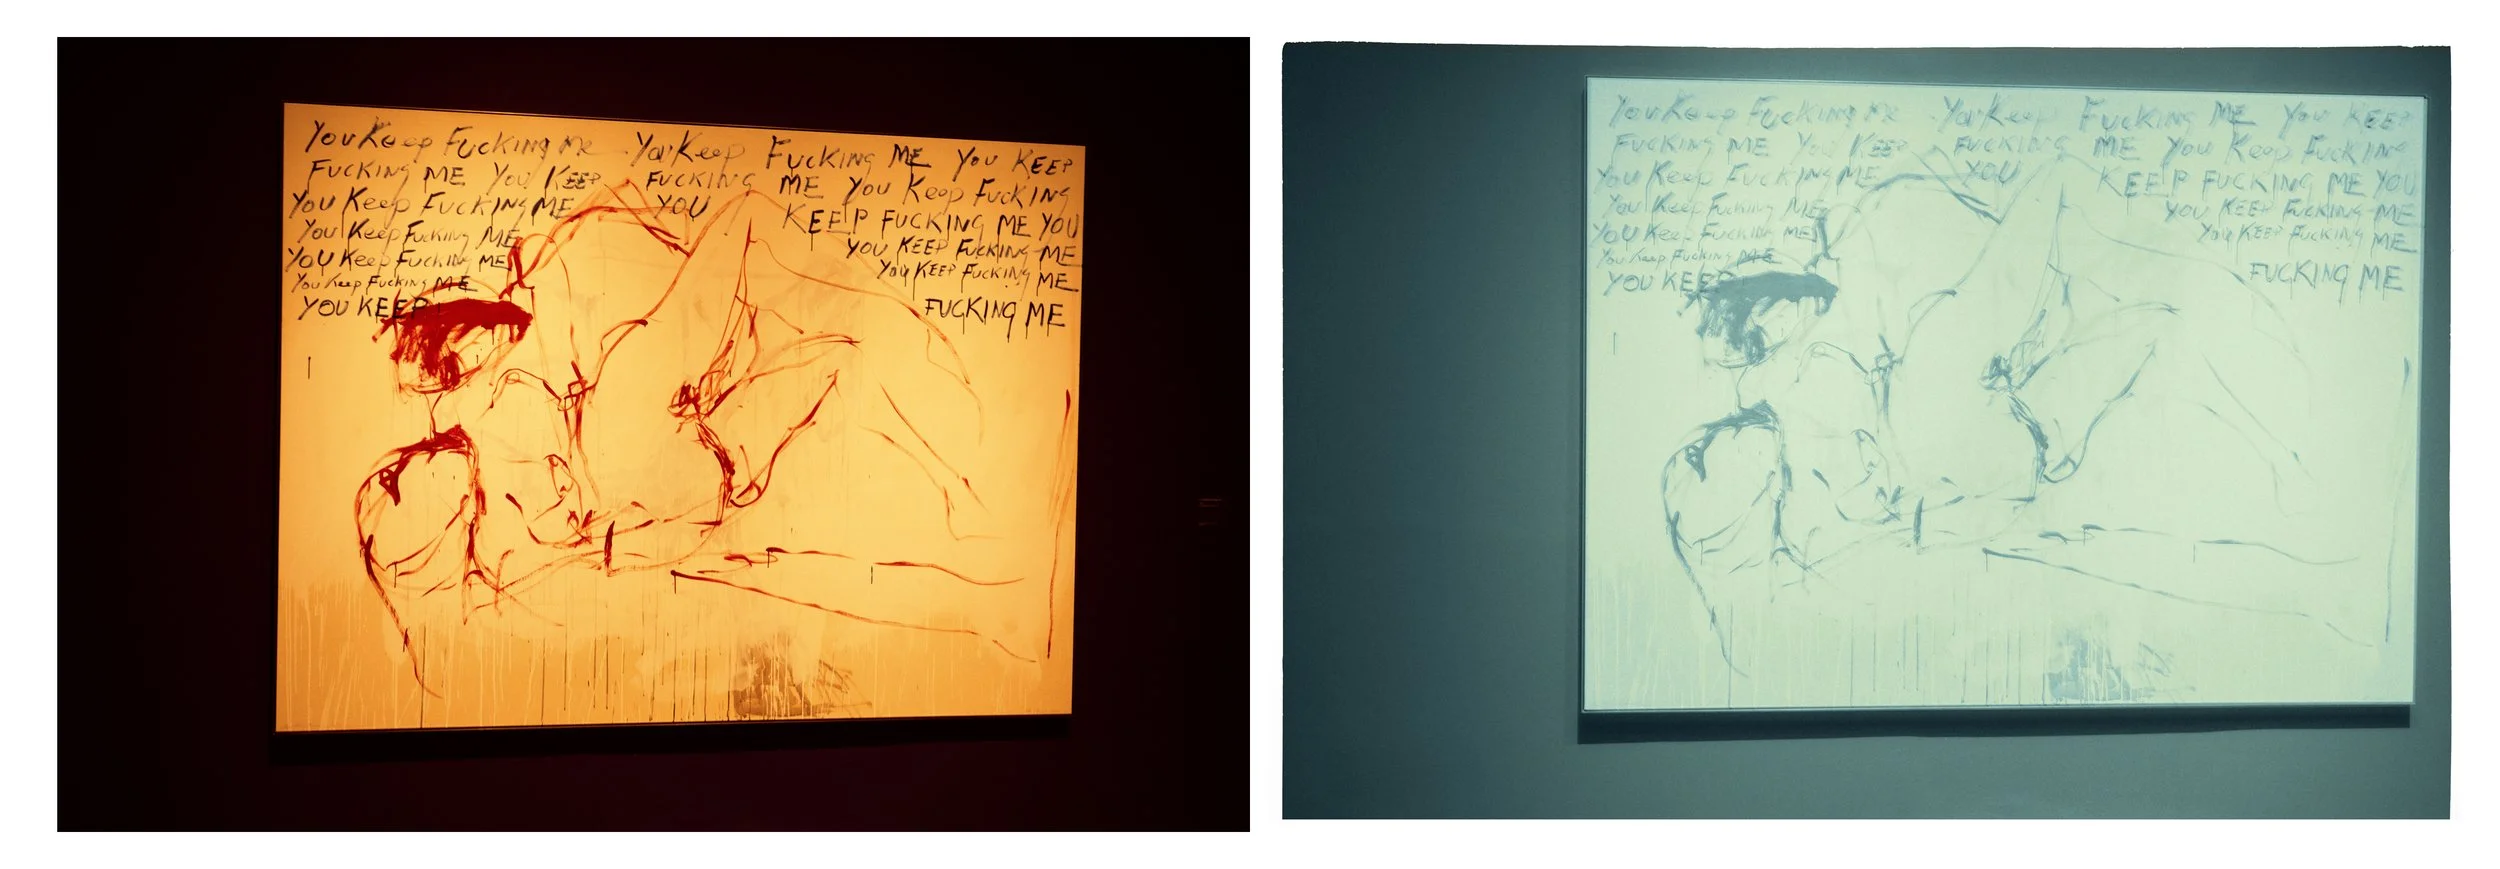 You Keep Fucking Me You Keep Fucking ME You KEEP
FUCKING ME You KEEP FUCKING ME You Keep Fucking
You Keep Fucking ME YOU KEEP FUCKING ME YOU
You Keep Fucking ME YOU KEEP FUCKING ME
You Keep Fucking ME You KEEP FUCKING ME
You Keep Fucking ME
YOU KEEP FUCKING ME
You Keep Fucking Me You Keep Fucking ME You KEEP
FUCKING ME You KEEP FUCKING ME You Keep Fucking
You Keep Fucking ME YOU KEEP FUCKING ME YOU
You Keep Fucking ME YOU KEEP FUCKING ME
You Keep Fucking ME You KEEP FUCKING ME
You Keep Fucking ME
YOU KEEP FUCKING ME